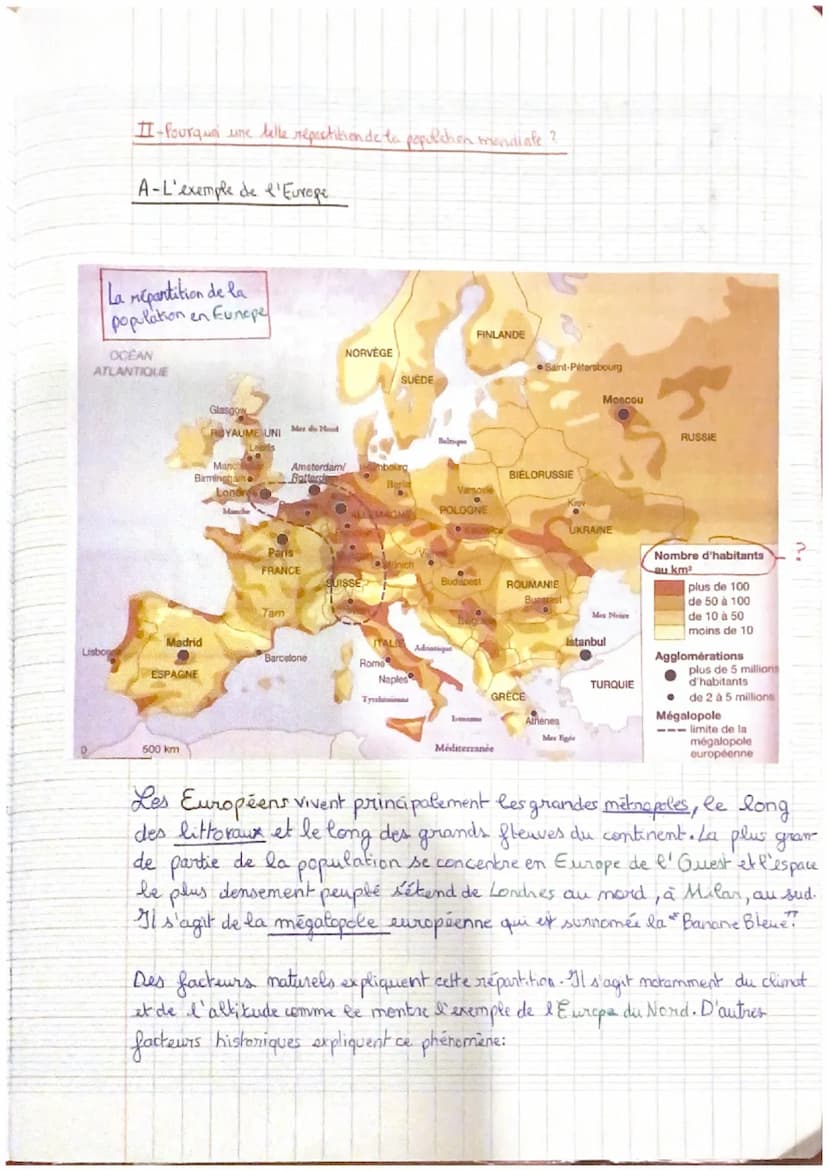 II-Pourquoi une telle répartition de la population mondiale ?
A-L'exemple de l'Europe
La répartition de la
population en Europe
OCÉAN
ATLANTIQUE
NORVÈGE
SUÈDE
FINLANDE
Saint-Pétersbourg
Moscou
RUSSIE
Glasgow
ROYAUME-UNI
Mer du Nord
Leeds
Baltique
Manchester
Birmingham
Amsterdam/
Rotterdam
Hambourg
Berlin
BIÉLORUSSIE
Londres
Varsovie
Manche
ALLEMAGNE
POLOGNE
Kiev
UKRAINE
Katowice
Paris
FRANCE
Munich
SUISSE
Budapest
ROUMANIE
Bucarest
Belgrade
Mer Noire
Turin
Madrid
Lisbonne
ESPAGNE
Barcelone
ITALIE
Adriatique
Rome
Naples
Tyrrhénienne
Istanbul
TURQUIE
GRÈCE
Ionienne
Athènes
Mer Egée
Méditerranée
0 500 km
Nombre d'habitants
au km²
?
plus de 100
de 50 à 100
de 10 à 50
moins de 10
Agglomérations
plus de 5 millions
d'habitants
de 2 à 5 millions
Mégalopole
limite de la
mégalopole
européenne
Les Européens vivent principalement les grandes métropoles, le long
des littoraux et le long des grands fleuves du continent. La plus gran-
de partie de la population se concentre en Europe de l'Ouest et l'espace
le plus densement peuplé s'étend de Londres au nord, à Milan, au sud.
Il s'agit de la mégalopole européenne qui est surnomée la "Banane Bleue".
Des facteurs naturels expliquent cette répartition. Il s'agit notamment du climat
et de l'altitude comme le montre l'exemple de l'Europe du Nord. D'autres
facteurs historiques expliquent ce phénomène: